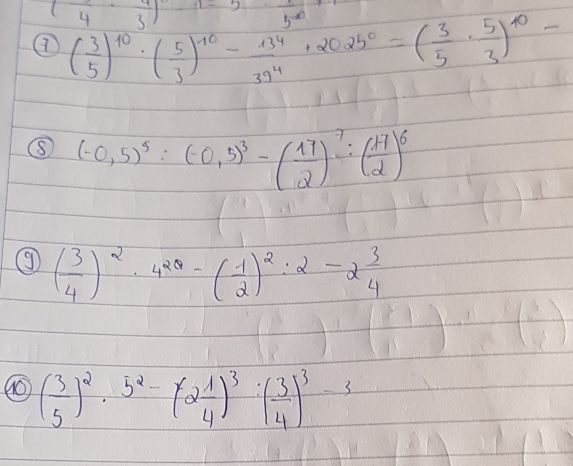 ⑦ (3/5)^10 · (5/3)^10 - 13^4/39^4 + 2025^0 = (3/5 · 5/3)^10 -
⑧ (-0,5)^5 : (-0,5)^3 - (17/2)^7 : (17/2)^6
⑨ (3/4)^2 · 4^20 - (1/2)^2 : 2 - 2 3/4
⑩ (3/5)^2 · 5^2 - (2 1/4)^3 : (3/4)^3 - 3